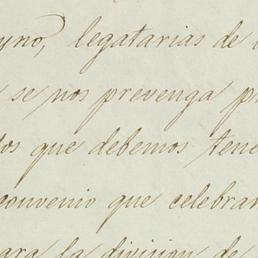 yno, legatarias de
se nos prevenga p
os que debemos tene
convenio que celebrar
ara la division de